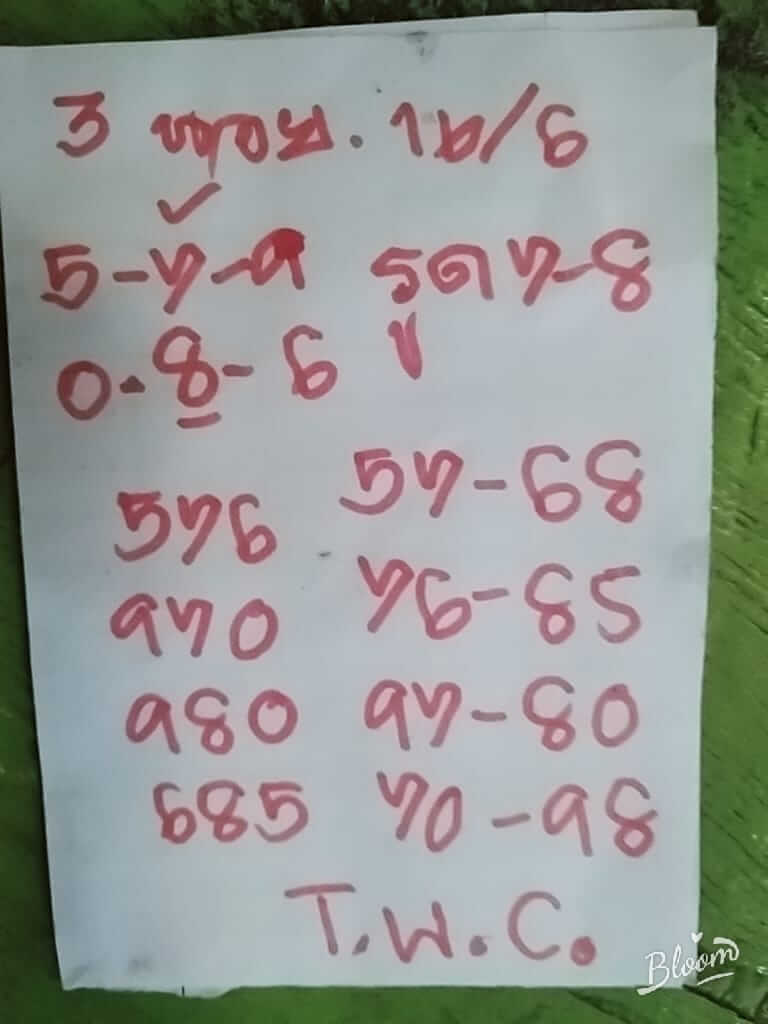 3 16/6
5-7-9 รูด 7-8
0-8-6
576 57-68
970 76-85
980 97-80
685 70-98
T.W.C.
Bloom